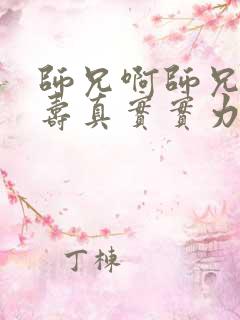 師兄啊師兄
壽真實實力
丁棟